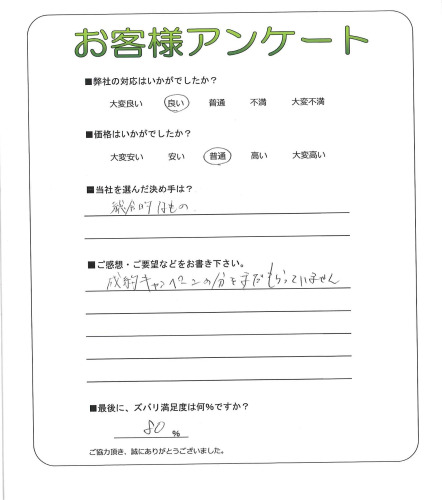 お客様アンケート
■弊社の対応はいかがでしたか？
大変良い 良い 普通 不満 大変不満
■価格はいかがでしたか？
大変安い 安い 普通 高い 大変高い
■当社を選んだ決め手は？
総合的なもの
■ご感想・ご要望などをお書き下さい。
成約キャンペーンの分をまだもらっていません
■最後に、ズバリ満足度は何%ですか？
80 %
ご協力頂き、誠にありがとうございました。